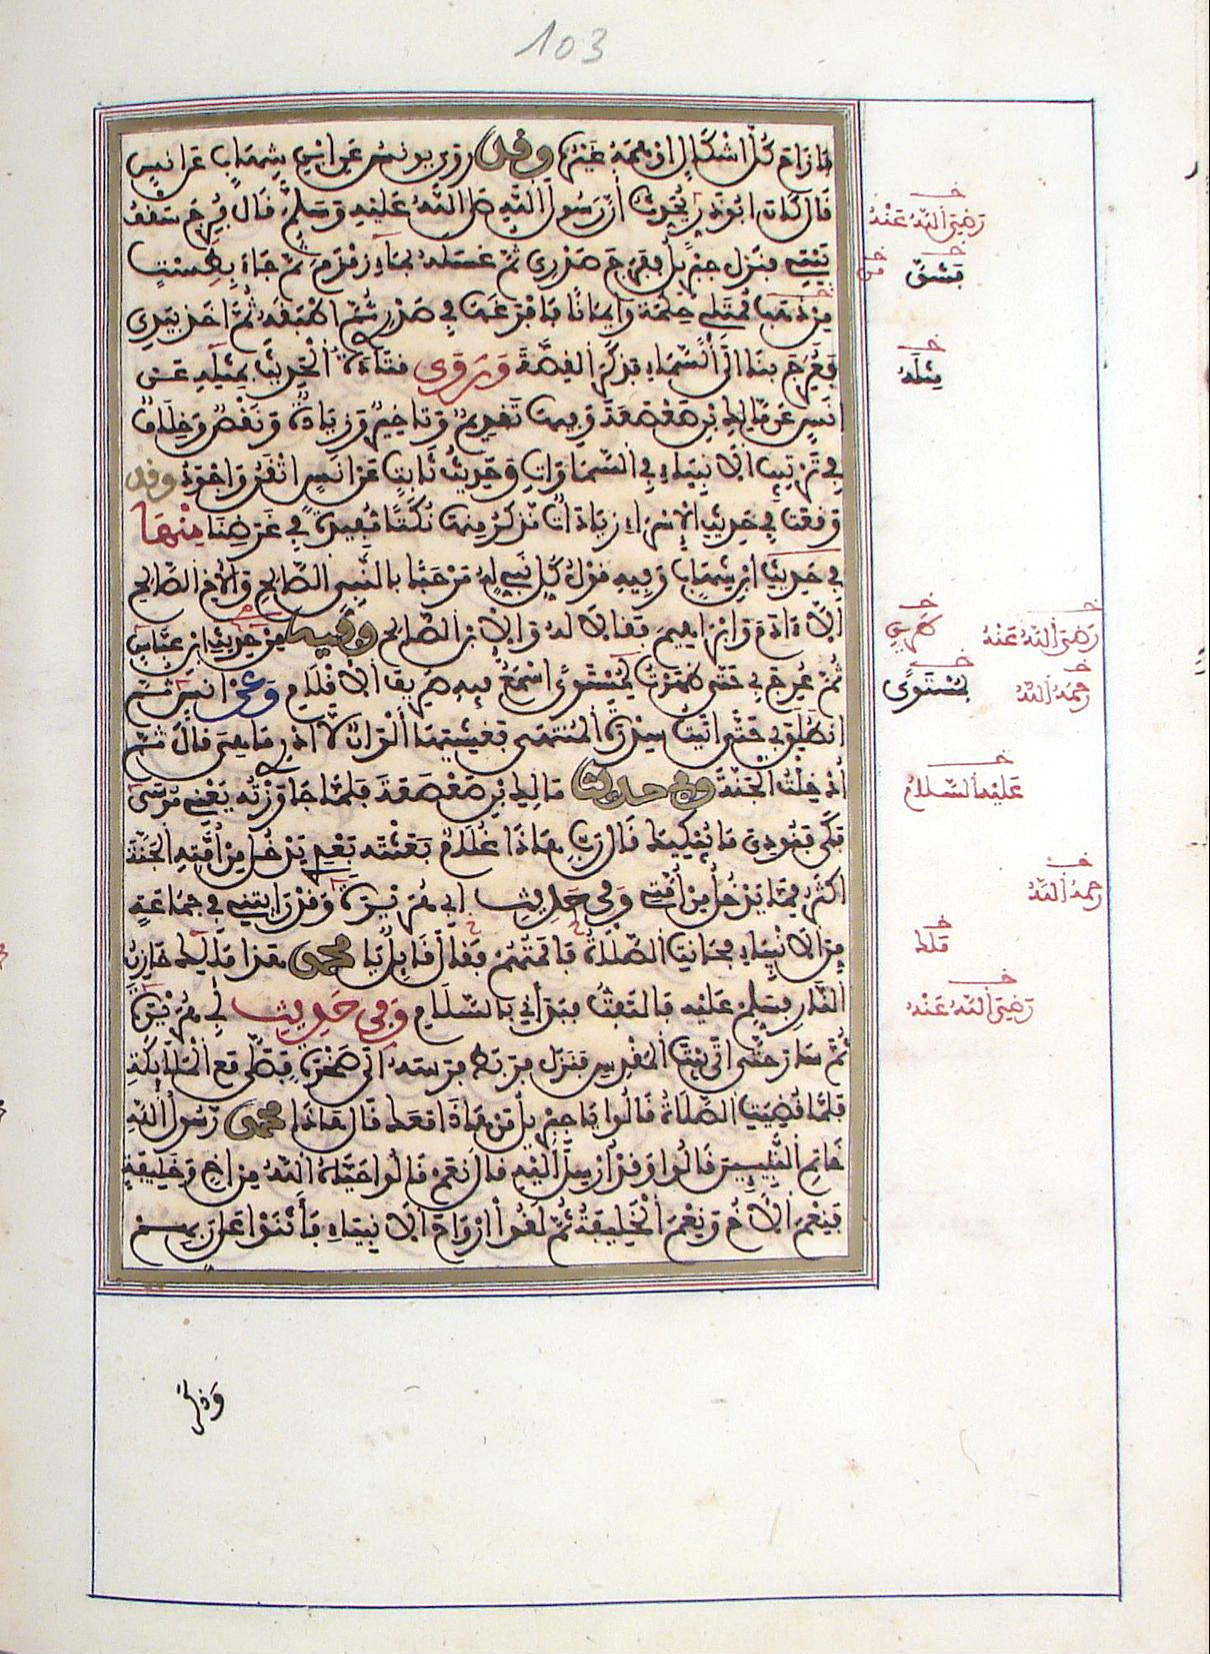 103
فأزاح كل إشكال أوهمه غيره وقد روى يونس عن ابن شهاب عن أنس
قال كان أبو ذر يحدث أن رسول الله صلى الله عليه وسلم قال فرج سقف
بيتي فنزل جبريل ففرج صدري ثم غسله بماء زمزم ثم جاء بطست
من ذهب ممتلئ حكمة وإيمانا فأفرغها في صدري ثم أطبقه ثم أخذ بيدي
فعرج بنا إلى السماء فذكر القصة وروى قتادة الحديث بمثله عن
أنس عن مالك بن صعصعة وفيها تقديم وتأخير وزيادة ونقص وخلاف
في ترتيب الأنبياء في السماوات وحديث ثابت عن أنس أتقن وأجود وقد
وقعت في حديث الإسراء زيادات نذكر منها نكتا مفيدة في غرضنا منها
في حديث ابن شهاب وفيه قول كل نبي له مرحبا بالنبي الصالح والأخ الصالح
إلا آدم وإبراهيم فقالا له والابن الصالح وفيه من حديث ابن عباس
ثم عرج بي حتى ظهرت لمستوى أسمع فيه صريف الأقلام وعن أنس ثم
انطلق بي حتى أتيت سدرة المنتهى فغشيتها ألوان لا أدري ما هي قال ثم
أدخلت الجنة وفي حديث مالك بن صعصعة فلما جاوزته يعني موسى
بكى فنودي ما يبكيك قال رب هذا غلام بعثته بعدي يدخل من أمته الجنة
أكثر مما يدخل من أمتي وفي حديث أبي هريرة وقد رأيتني في جماعة
من الأنبياء فحانت الصلاة فأممتهم فقال قائل يا محمد هذا مالك خازن
النار فسلم عليه فالتفت فبدأني بالسلام وفي حديث أبي هريرة
ثم سار حتى أتى بيت المقدس فنزل فربط فرسه إلى صخرة فصلى مع الملائكة
فلما قضيت الصلاة قالوا يا جبريل من هذا معك قال هذا محمد رسول الله
خاتم النبيين قالوا وقد أرسل إليه قال نعم قالوا حياه الله من أخ وخليفة
فنعم الأخ ونعم الخليفة ثم لقوا أرواح الأنبياء فأثنوا على ربهم
رضي الله عنه
فشق
من
مثله
رضي الله عنه
بمستوى
رحمه الله
عليه السلام
رحمه الله
رضي الله عنه
وذكر